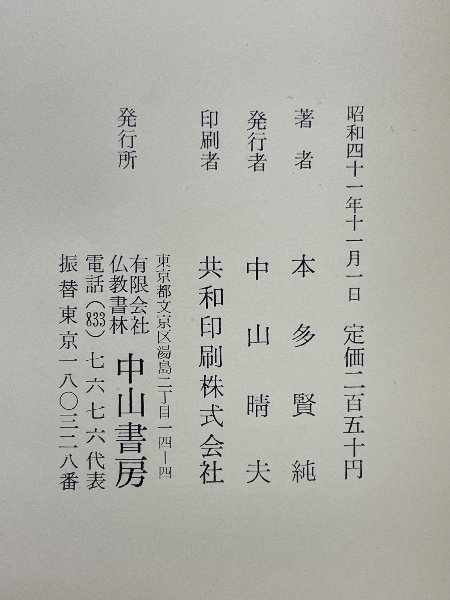 昭和四十一年十一月一日 定価二百五十円
著者 本多賢純
発行者 中山晴夫
印刷者 共和印刷株式会社
東京都文京区湯島二丁目一四—四
発行所 有限会社 仏教書林 中山書房
電話(833)七六七六代表
振替東京一八〇三二八番